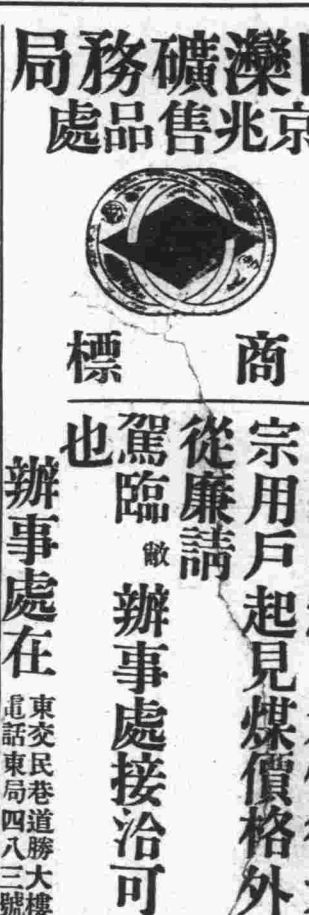 灤礦務局
京兆售品處
商標
宗用戶起見煤價格外
從廉請
駕臨敝辦事處接洽可
也
辦事處在
東交民巷道勝大樓
電話東局四八三號